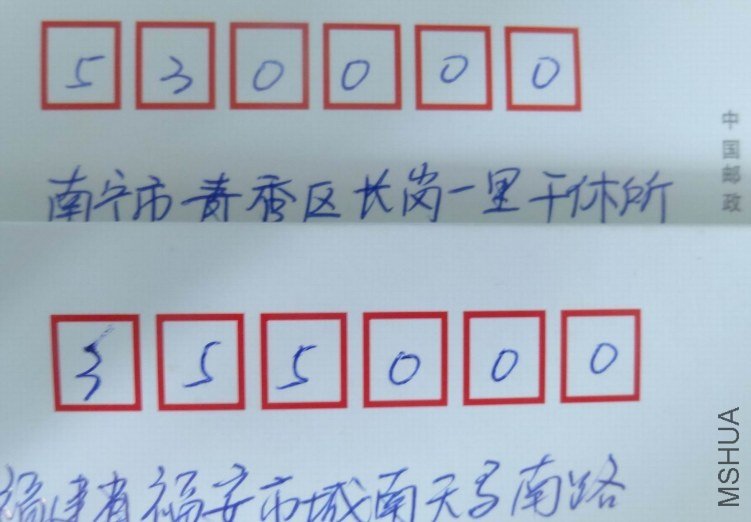 530000
中国邮政
南宁市青秀区长岗一里干休所
355000
福建省福安市城南天马南路
MSHUA